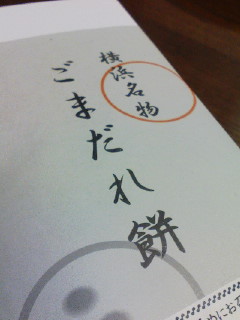 横浜名物
ごまだれ餅